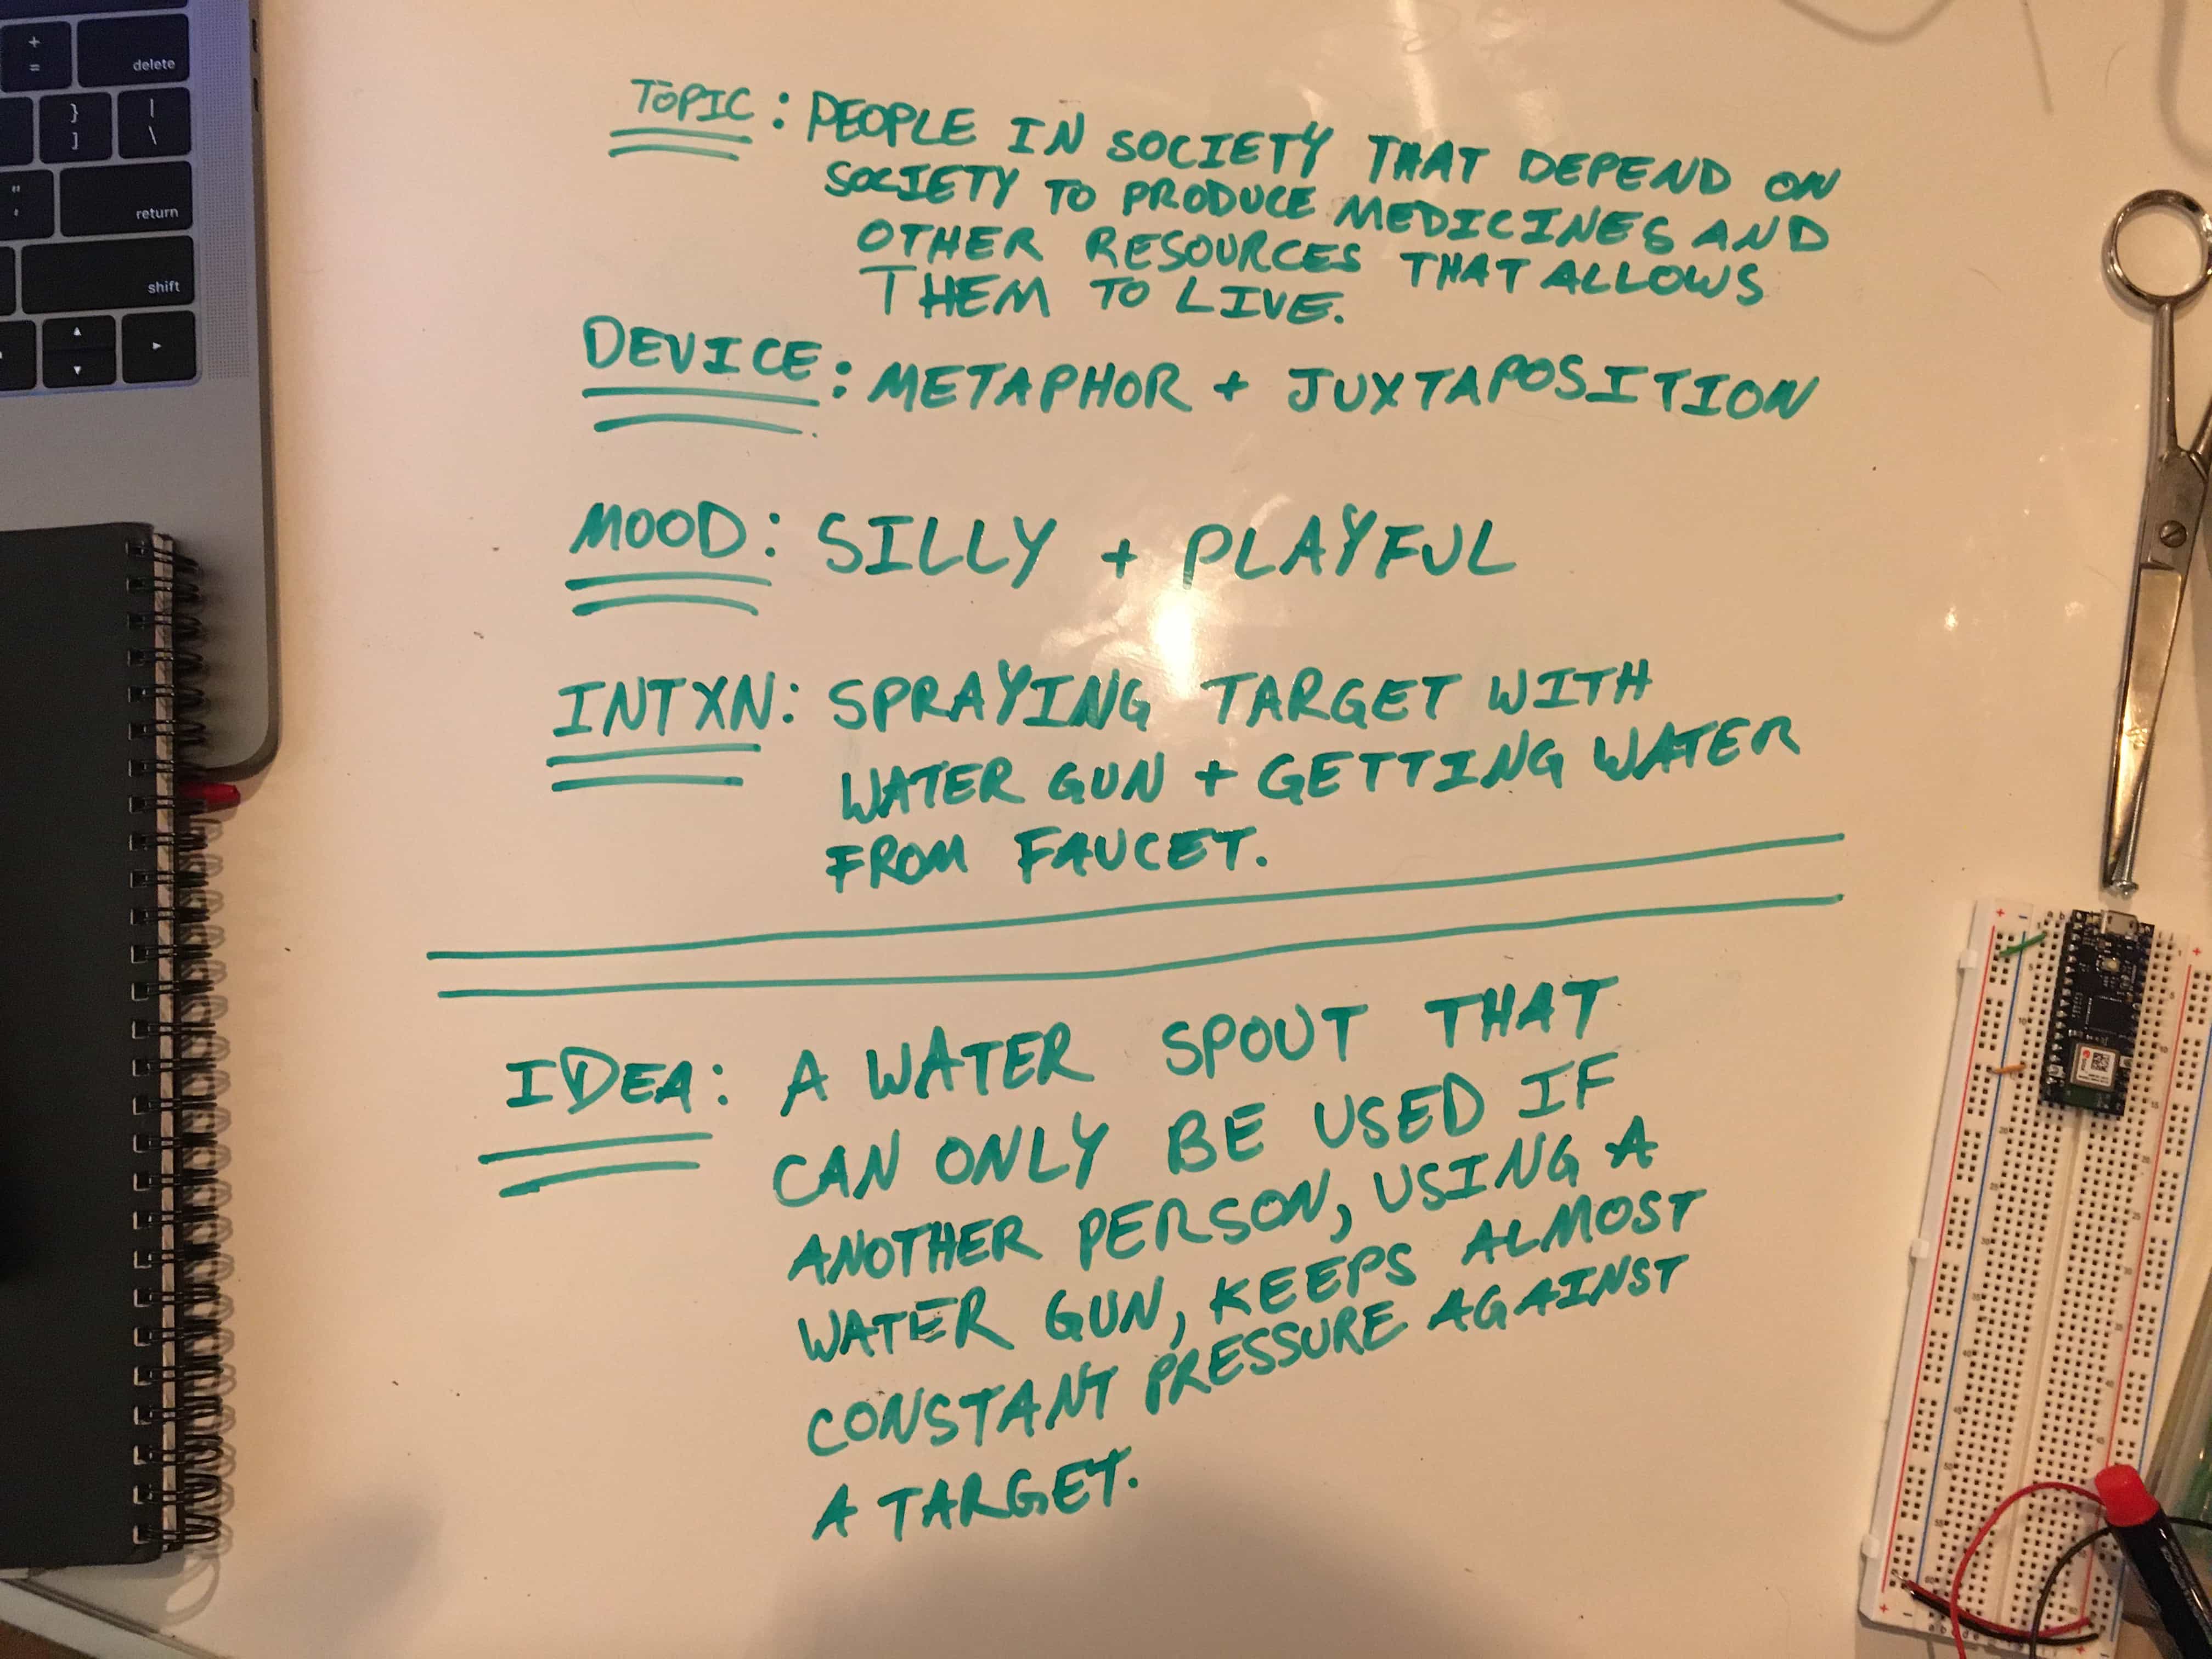 +
=
delete
}
]
|
\
"
'
return
shift
TOPIC: PEOPLE IN SOCIETY THAT DEPEND ON
SOCIETY TO PRODUCE MEDICINES AND
OTHER RESOURCES THAT ALLOWS
THEM TO LIVE.
DEVICE: METAPHOR + JUXTAPOSITION
MOOD: SILLY + PLAYFUL
INTXN: SPRAYING TARGET WITH
WATER GUN + GETTING WATER
FROM FAUCET.
IDEA: A WATER SPOUT THAT
CAN ONLY BE USED IF
ANOTHER PERSON, USING A
WATER GUN, KEEPS ALMOST
CONSTANT PRESSURE AGAINST
A TARGET.